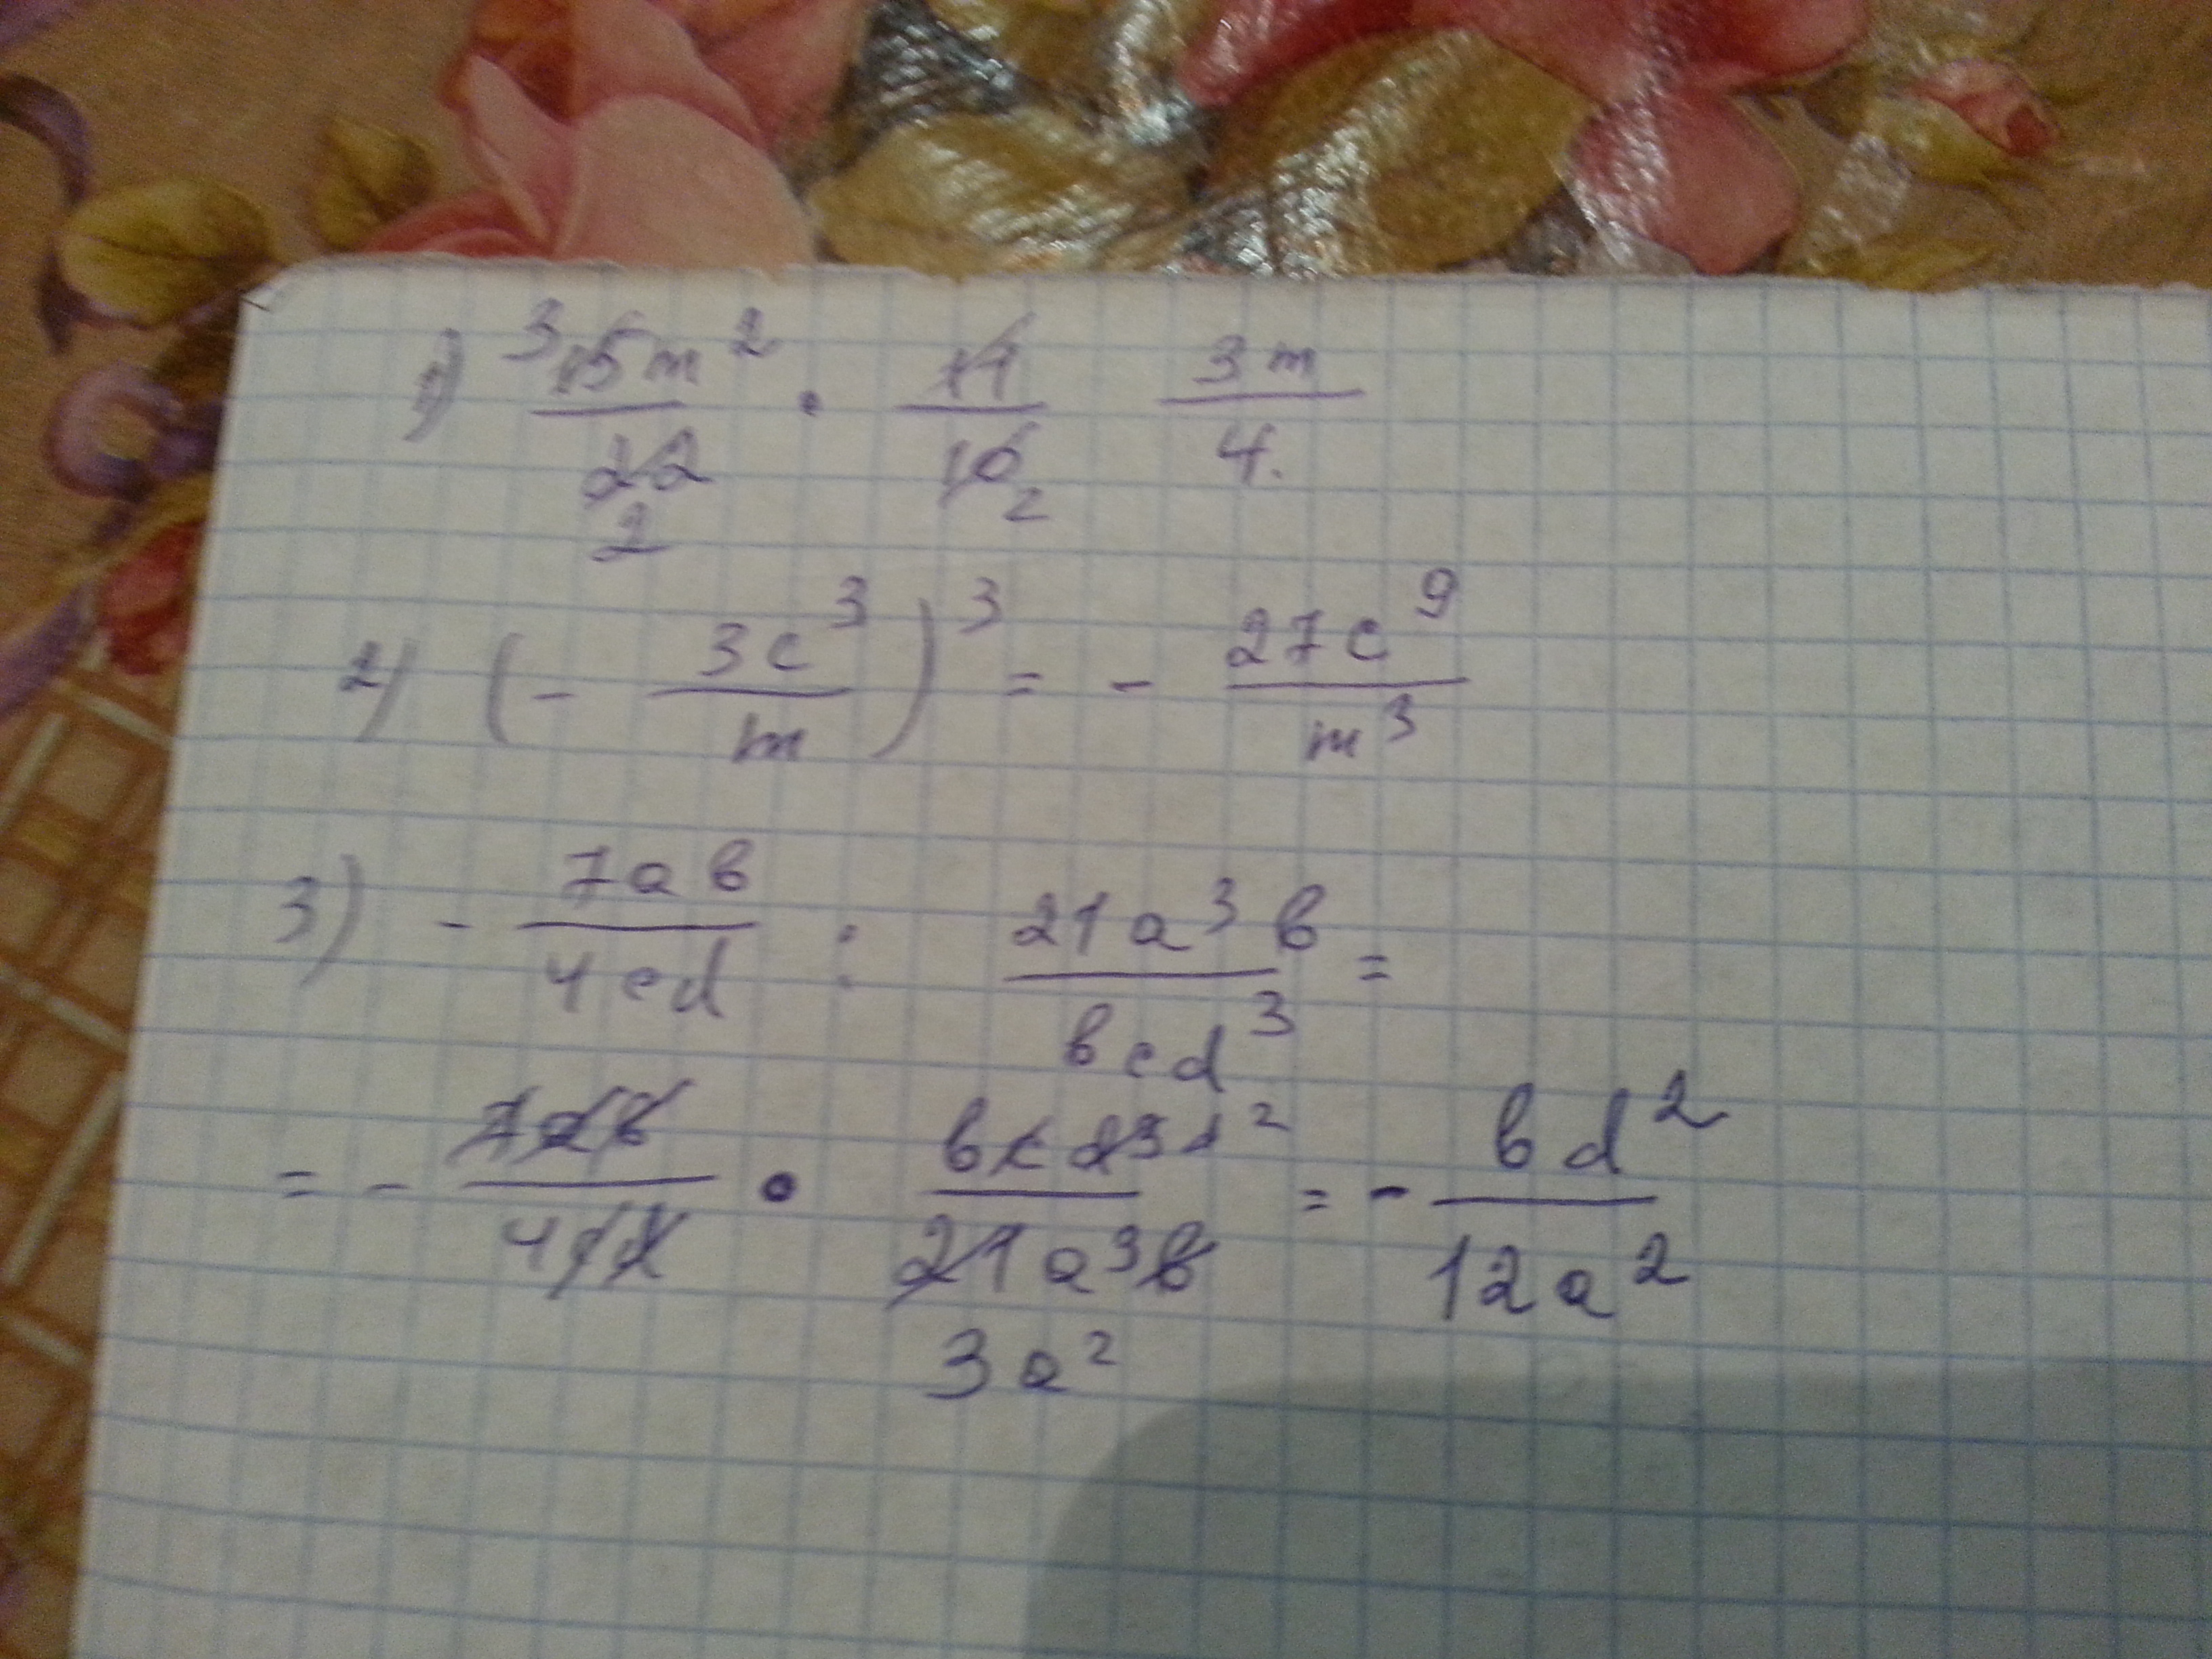 1) 3 15m² / 22 2 · 11 / 10 2 3m / 4.
2) (- 3c³ / m)³ = - 27c⁹ / m³
3) - 7ab / 4cd : 21a³b / bcd³ =
= - 7ab / 4cd · bcd³ d² / 21a³b 3a² = - bd² / 12a²